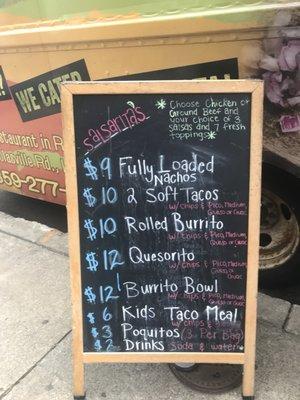 WE CATER
Restaurant in R
ille Rd., L
859-277-
Salsarita's
* Choose Chicken or
Ground Beef and
your choice of 3
salsas and 7 fresh
toppings *
$9 Fully Loaded
Nachos
$10 2 Soft Tacos
w/ Chips & Pico, Medium,
Queso or Guac
$10 Rolled Burrito
w/ Chips & Pico, Medium,
Queso or Guac
$12 Quesorito
w/ Chips & Pico, Medium,
Queso or Guac
$12 Burrito Bowl
w/ Chips & Pico, Medium,
Queso or Guac
$6 Kids Taco Meal
w/ Chips &
$3 Poquitos (3 Per Bag)
$2 Drinks Soda & water